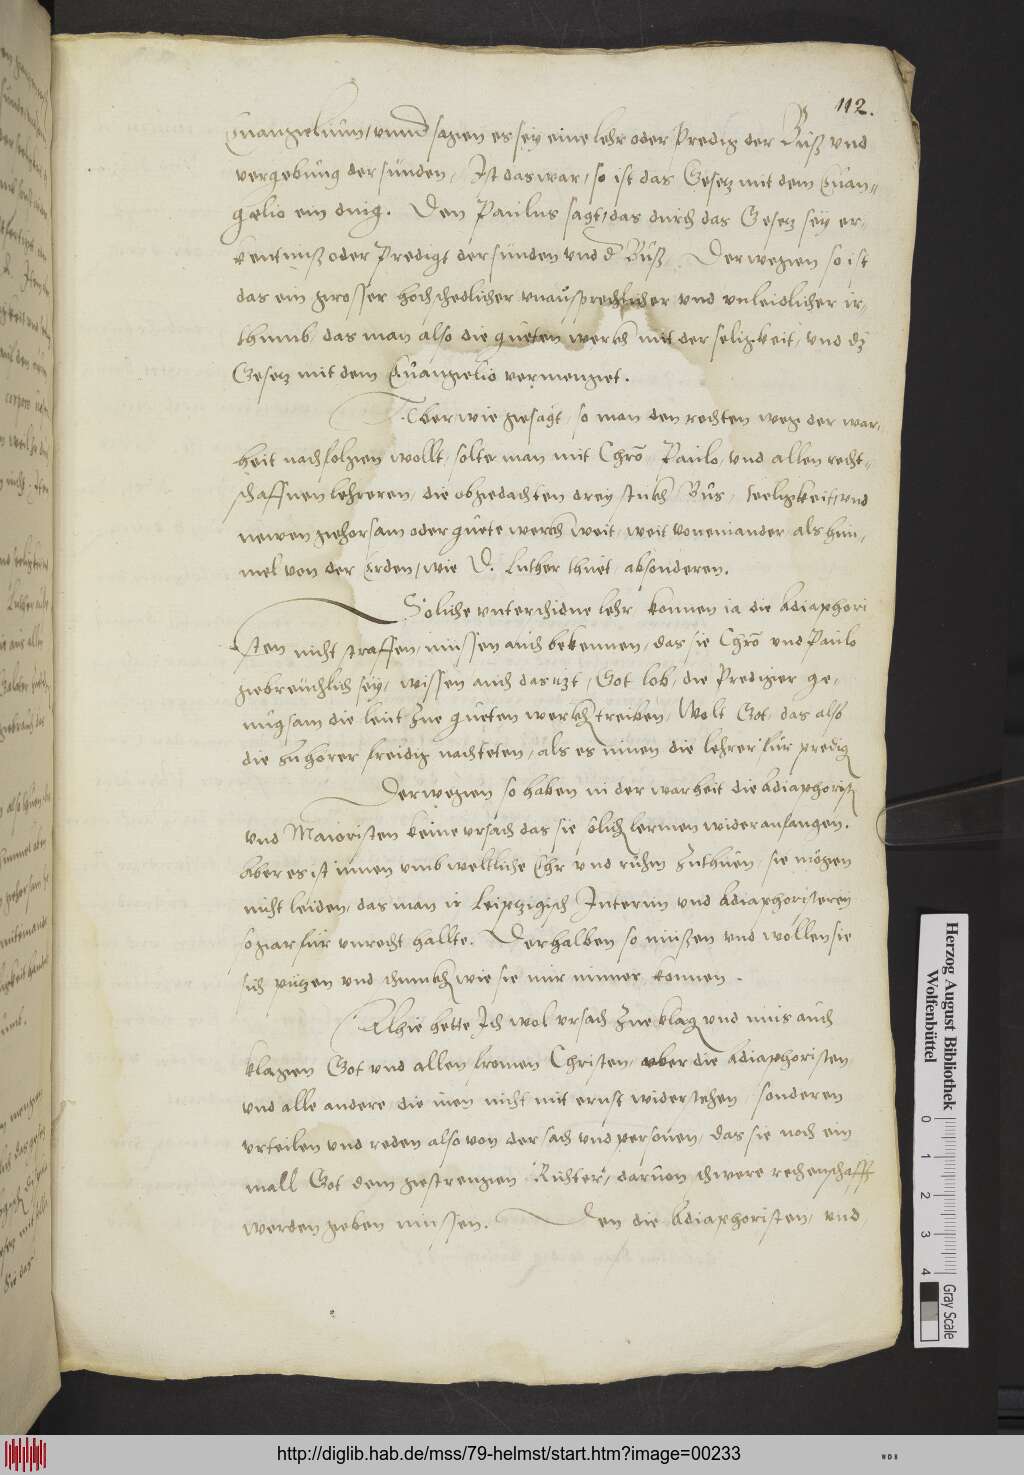 112.
Euangelium, vnnd sagen es sey eine lehr oder Predig der Buß vnd
vergebung der sunden, Ist das war, so ist das Gesetz mit dem Euan-
gelio ein ding. Den Paulus sagt, das durch das Gesetz sey er-
kentniß oder Predigt der sunden vnd d Buß. Derwegen so ist
das ein grosser hoch schedlicher vnaußsprechlicher vnd vnleidlicher ir-
thumb, das man also die gueten werch mit der seligkeit, vnd dz
Gesetz mit dem Euangelio vermenget.
Aber wie gesagt, so man den rechten weg der war-
heit nachfolgen wollt, solte man mit Chro, Paulo, vnd allen recht-
schaffnen lehreren, die obgedachten drey stuckh, Bus, seeligkeit, vnd
newen gehorsam oder guete werch weit, weit voneinander, als him-
mel von der Erden, wie D. Luther thuet, absonderen.
Soliche vnterschidne lehr, konnen ia die Adiaphori
sten nicht straffen, müssen auch bekennen, das sie Chro vnd Paulo
gebreuchlich sey, wissen auch das itzt, Got lob, die Prediger ge-
nugsam die leut zue gueten werckh treiben, Wolt Got, das also
die zuhorer freidig nachteten, als es inen die lehrer fur predig
Derwegen so haben in der warheit die Adiaphorist
vnd Maioristen keine vrsach das sie solch lermen wider anfangen.
Aber es ist innen vmb weltliche Ehr vnd ruhm zuthuen, sie mögen
nicht leiden, das man ir Leiptzigisch Interim vnd Adiaphoristeren
sogar für vnrecht hallte. Derhalben so müßen vnd wöllen sie
sich putzen vnd schmuckh wie sie nur immer konnen.
Alhie hette Ich wol vrsach zue klag vnd mus auch
klagen Got vnd allen fromen Christen, vber die Adiaphoristen
vnd alle andere, die inen nicht mit ernst widerstehen, sonderen
vrteilen vnd reden also von der sach vnd personen, das sie noch ein
mall Got dem gestrengen Richter, daruon schwere rechenschafft
werden geben müssen. Den die Adiaphoristen, vnd
Herzog August Bibliothek
Wolfenbüttel
0 1 2 3 4
Gray Scale
http://diglib.hab.de/mss/79-helmst/start.htm?image=00233